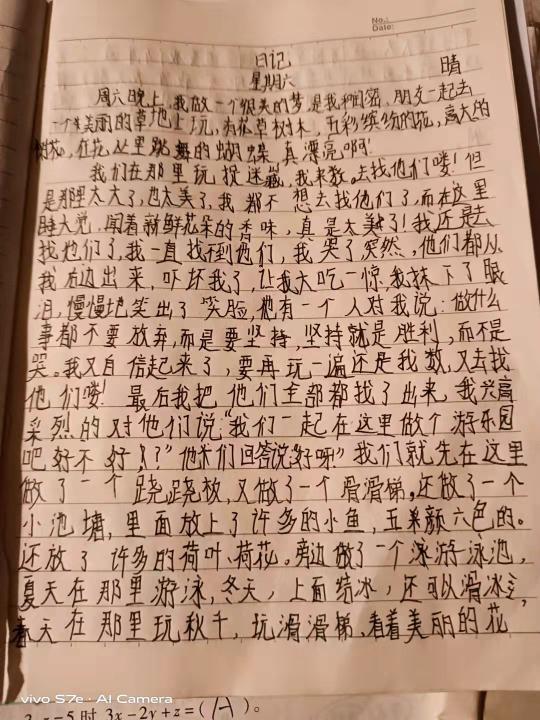 No.:
Date:
日记
星期六 晴
周六晚上,我做一个很美的梦,是我和闺密、朋友一起去
一个美丽的草地上玩,有花草树木,五彩缤纷的花,高大的
树,在花丛里跳舞的蝴蝶,真漂亮啊!
我们在那里玩捉迷藏,我来数。去找他们喽!但
是那里太大了,也太美了,我都不想去找他们了,而在这里
睡大觉,闻着新鲜花朵的香味,真是太美了!我还是去
找他们了,我一直找不到他们,我哭了突然,他们都从
我右边出来,吓坏我了,让我大吃一惊,我抹下了眼
泪,慢慢地笑出了笑脸,他有一个人对我说:做什么
事都不要放弃,而是要坚持,坚持就是胜利,而不是
哭。我又自信起来了,要再玩一遍还是我数,又去找
他们喽!最后我把他们全部都找了出来,我兴高
采烈的对他们说:"我们一起在这里做个游乐园
吧好不好!?"他们回答说:"好呀!"我们就先在这里
做了一个跷跷板,又做了一个滑滑梯,还做了一个
小池塘,里面放上了许多的小鱼,五采颜六色的。
还放了许多的荷叶、荷花。旁边做了一个泳游泳池,
夏天在那里游泳,冬天,上面结冰,还可以滑冰,
春天在那里玩秋千,玩滑滑梯,看着美丽的花
vivo S7e · AI Camera
=5时 3x-2y+z=( )。